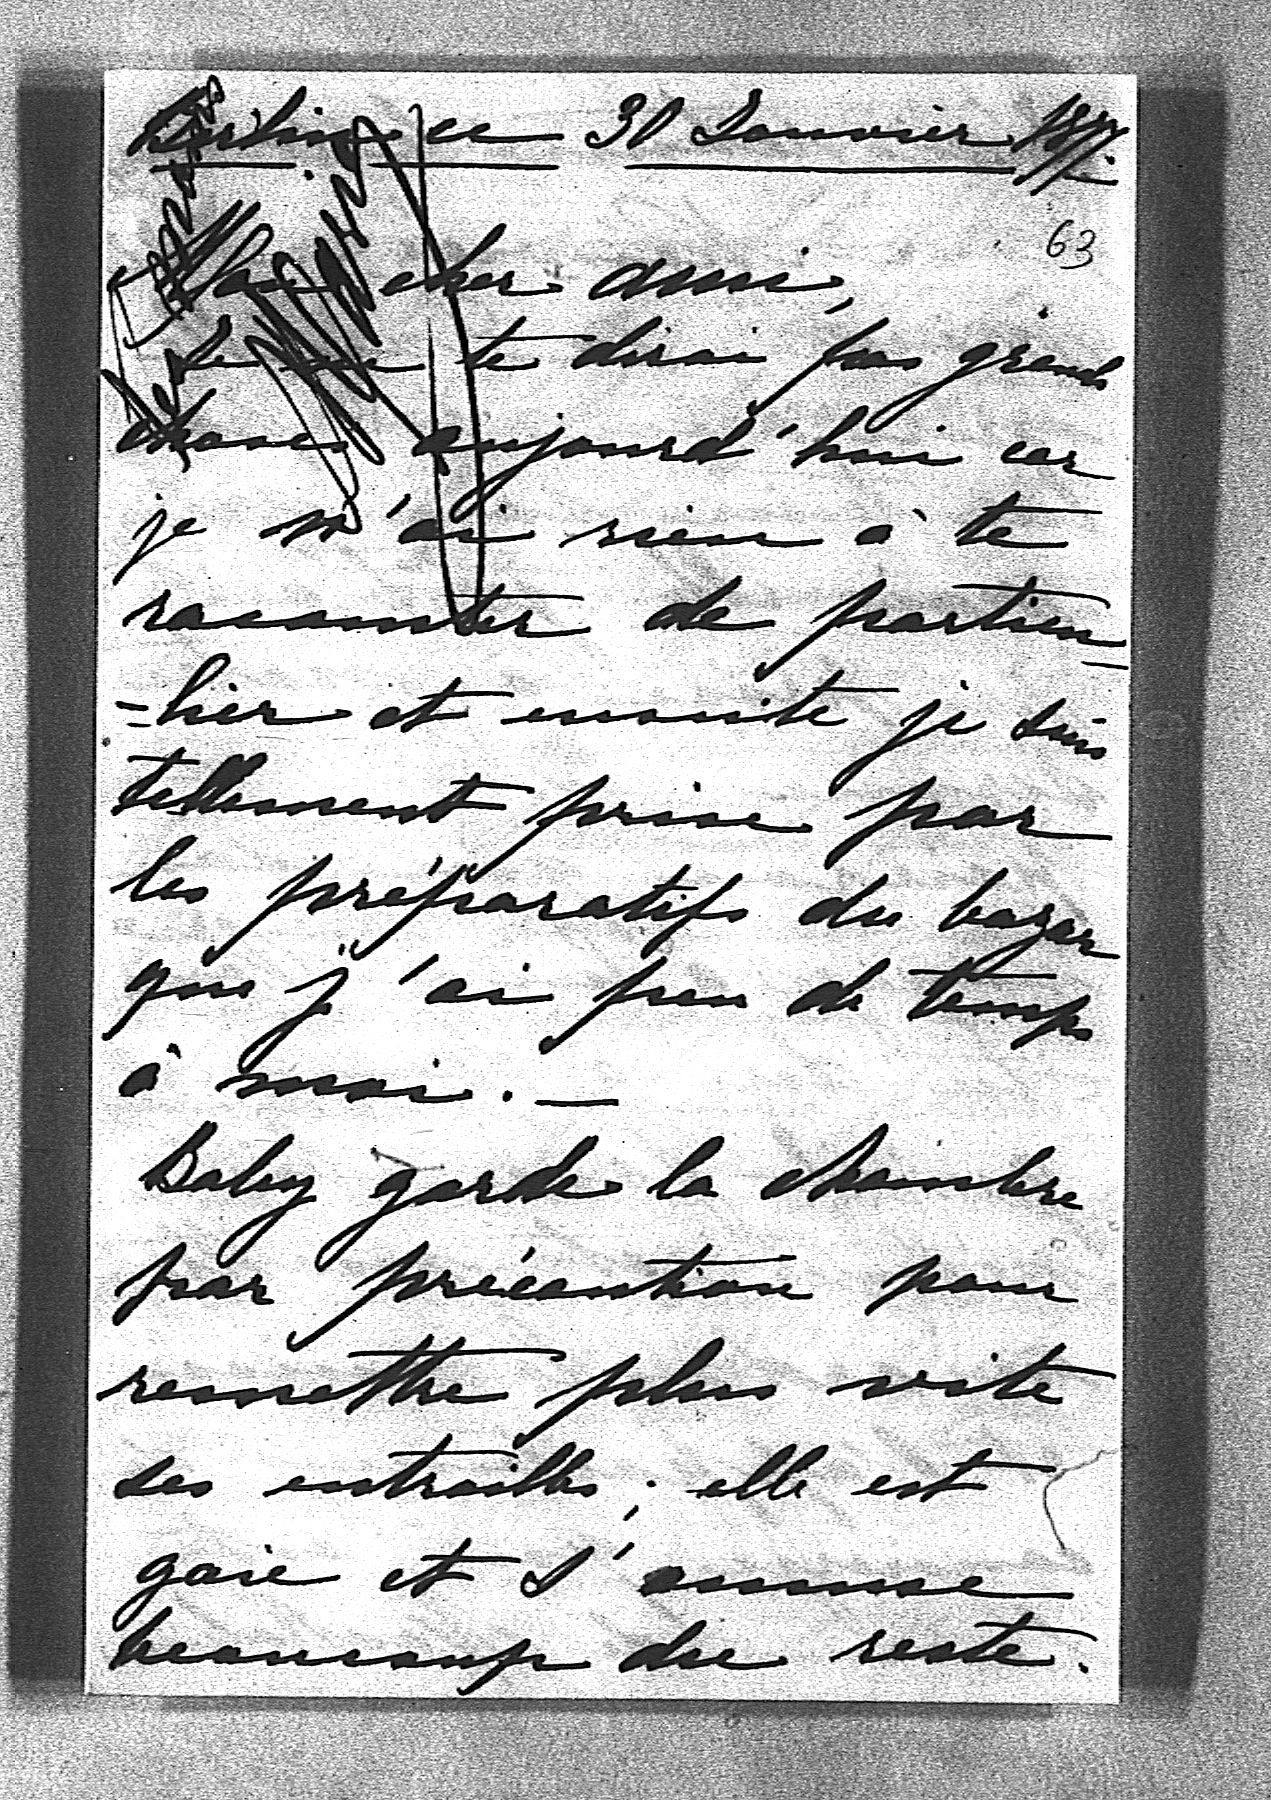 Berlin ce 30 Janvier
63
Mon cher ami,
Je ne te dirai pas grande
chose aujourd'hui car
je n'ai rien à te
raconter de particu-
=lier et ensuite je suis
tellement prise par
les préparatifs du bazar
que j'ai peu de temps
à moi. —
Baby garde la chambre
par précaution pour
remettre plus vite
ses entrailles; elle est
gaie et s'amuse
beaucoup du reste.